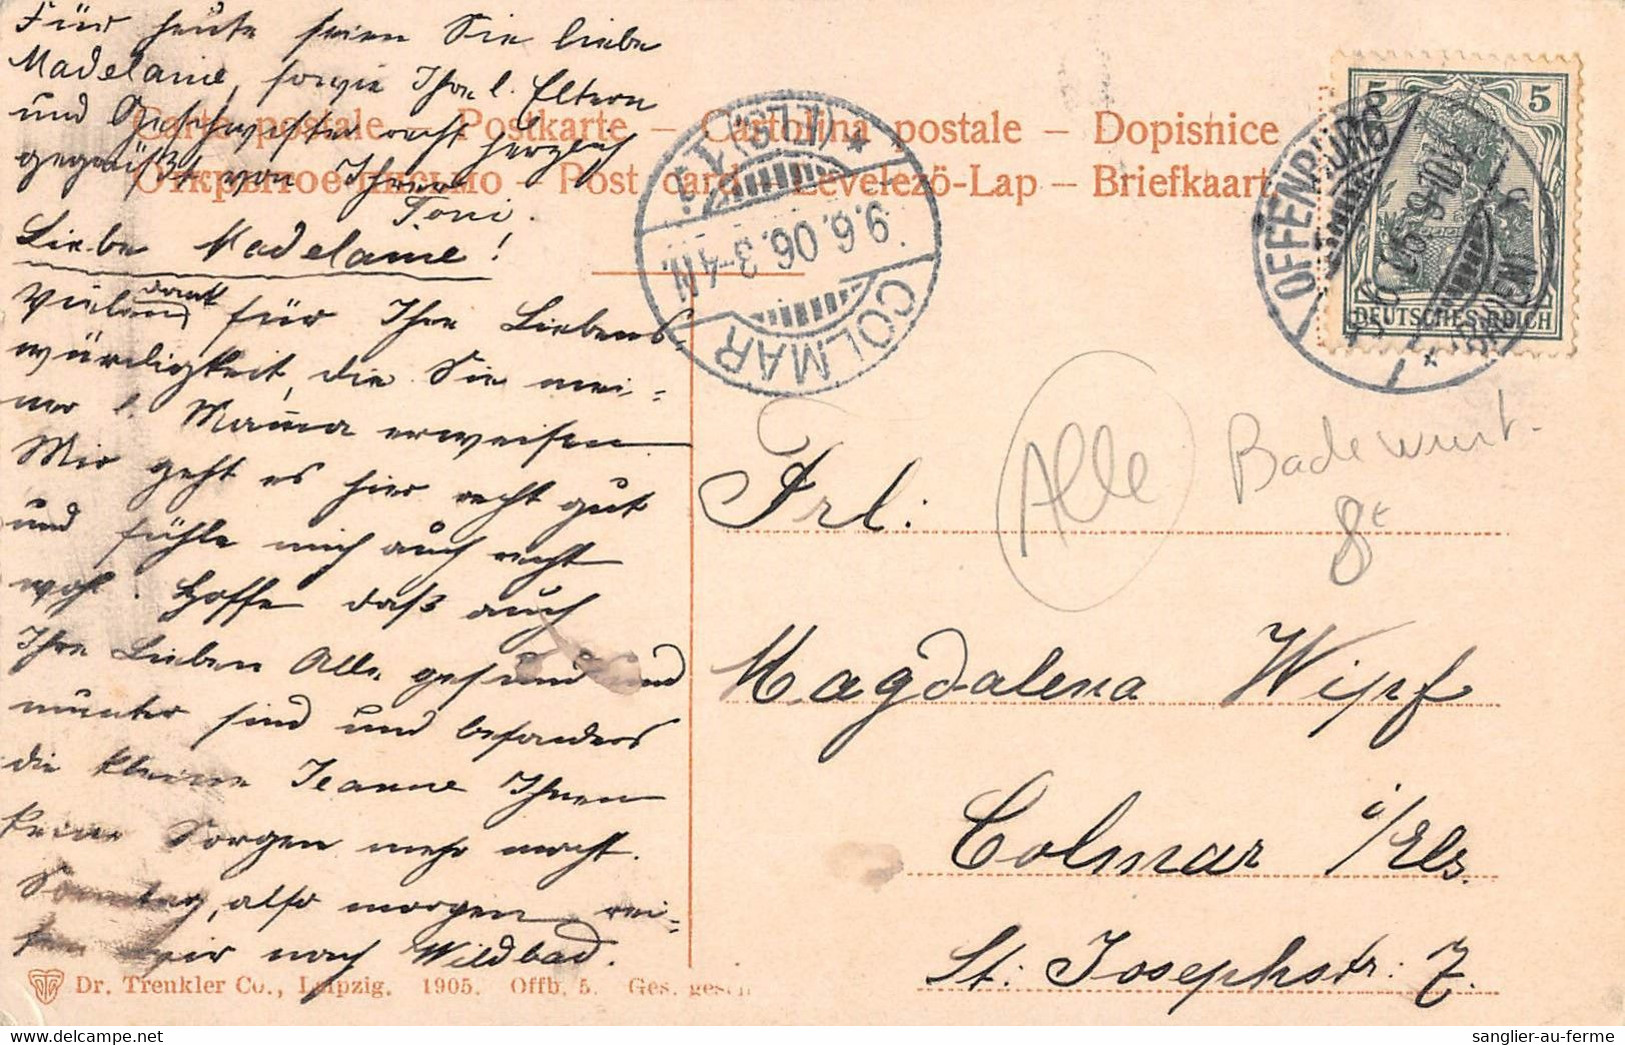 Für heute seien Sie liebe
Madelaine, sowie Ihre l. Eltern
und Geschwister recht herzlich
gegrüßt von Ihrer
Toni.
Liebe Madelaine!
Vielen dank für Ihre Liebens
würdigkeit, die Sie mei=
ner l. Mama erweisen
Mir geht es hier recht gut
und fühle mich auch recht
wohl. Hoffe daß auch
Ihre Lieben Alle gesund und
munter sind und besonders
die kleine Jeanne Ihnen
keine Sorgen mehr macht.
Sonntag, also morgen rei=
sen wir nach Wildbad.
Carte postale – Postkarte – Cartolina postale – Dopisnice
Открытое письмо – Post card – Levelező-Lap – Briefkaart
COLMAR
(ELS)
9.6.06.3-4N.
OFFENBURG
(BADEN)
5 5
DEUTSCHES REICH
Alle
Bade wurt.
8€
Frl:
Magdalena Wipf
Colmar i/Els.
St: Josephstr: 7.
Dr. Trenkler Co., Leipzig. 1905. Offb. 5. Ges. gesch.
sanglier-au-ferme